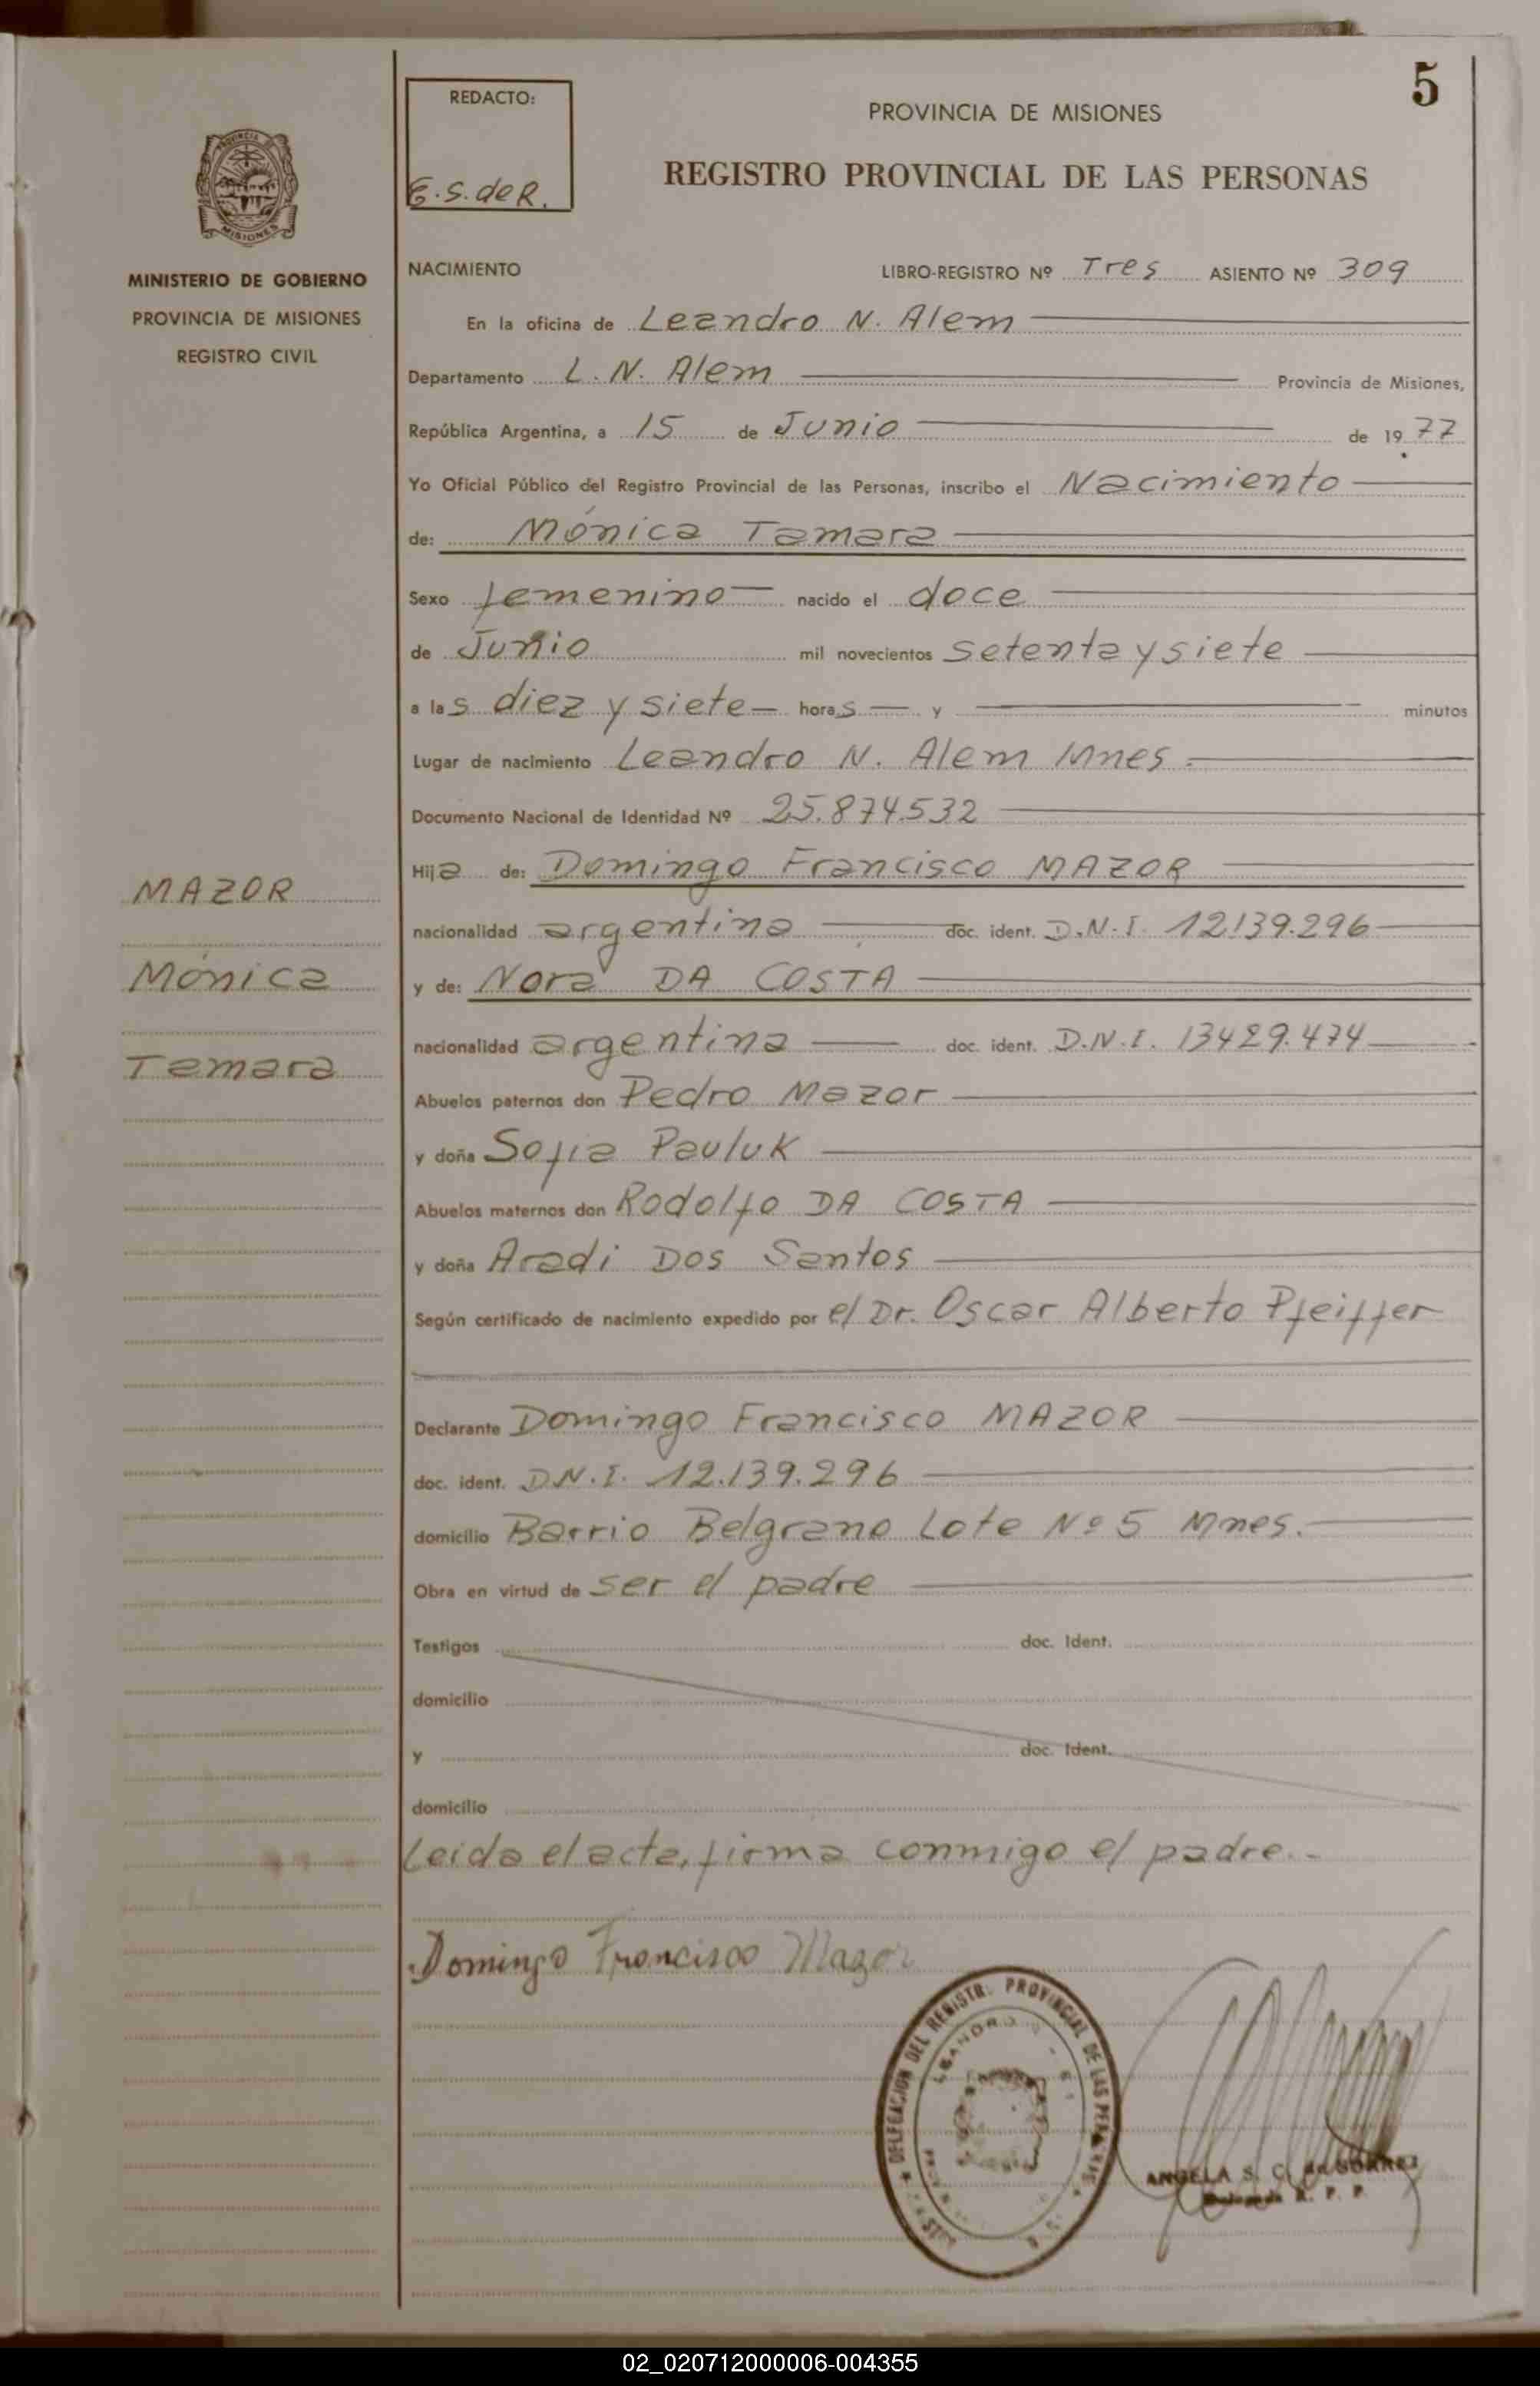 5
REDACTO:
E.S.deR.
PROVINCIA DE MISIONES
REGISTRO PROVINCIAL DE LAS PERSONAS
PROVINCIA DE
MISIONES
MINISTERIO DE GOBIERNO
PROVINCIA DE MISIONES
REGISTRO CIVIL
NACIMIENTO LIBRO-REGISTRO Nº Tres ASIENTO Nº 309
En la oficina de Leandro N. Alem
Departamento L. N. Alem Provincia de Misiones,
República Argentina, a 15 de Junio de 1977
Yo Oficial Público del Registro Provincial de las Personas, inscribo el Nacimiento
de: Mónica Tamara
Sexo femenino nacido el doce
de Junio mil novecientos setenta y siete
a las diez y siete horas y minutos
Lugar de nacimiento Leandro N. Alem Mnes.
Documento Nacional de Identidad Nº 25.874.532
Hija de: Domingo Francisco MAZOR
nacionalidad argentina doc. ident. D.N.I. 12.139.296
y de: Nora DA COSTA
nacionalidad argentina doc. ident. D.N.I. 13429.474
Abuelos paternos don Pedro Mazor
y doña Sofia Pauluk
Abuelos maternos don Rodolfo DA COSTA
y doña Aradi Dos Santos
Según certificado de nacimiento expedido por el Dr. Oscar Alberto Pfeiffer
Declarante Domingo Francisco MAZOR
doc. ident. D.N.I. 12.139.296
domicilio Barrio Belgrano Lote Nº 5 Mnes.
Obra en virtud de ser el padre
Testigos doc. Ident.
domicilio
y doc. Ident.
domicilio
Leida el acta, firma conmigo el padre.-
MAZOR
Mónica
Tamara
Domingo Francisco Mazor
DELEGACION DEL REGISTR. PROVINCIAL DE LAS
LEANDRO
ANGELA S. C.
R. P. P.
02_020712000006-004355